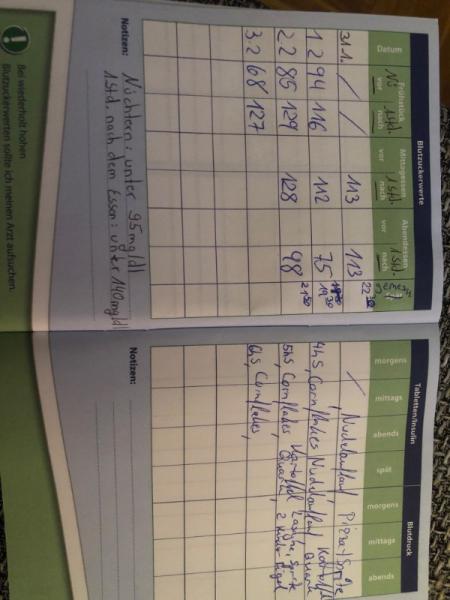 Blutzuckerwerte
Datum Frühstück Mittagessen Abendessen
vor nach vor nach vor nach
Nü 1Std. 1Std. 1Std.
31.1. / / 113 113 22
1 2 94 116 112 75 19
2 2 85 129 128 98
3 2 68 127
Notizen:
Nüchtern: unter 95mg/dl
1Std. nach dem Essen: unter 140mg/dl
Bei wiederholt hohen
Blutzuckerwerten sollte ich meinen Arzt aufsuchen.
Tabletten/Insulin Blutdruck
morgens mittags abends spät morgens mittags abends
/ , Nudelauflauf Pizza + Sprite
Cornflakes Nudelauflauf
Cornflakes Kartoffel Lasagne, Sprite
Quark, 2 Kinder Riegel
Cornflakes,
Notizen: